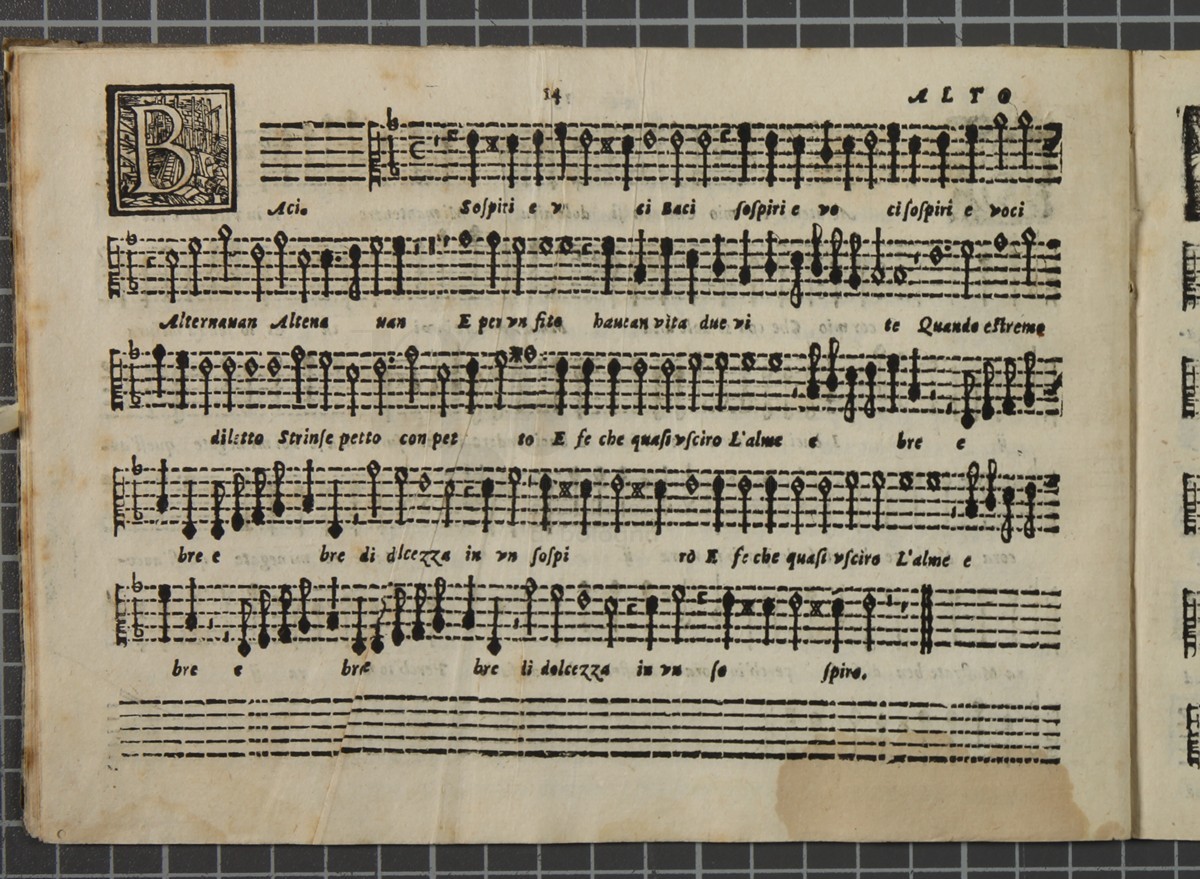 14 ALTO
B
Aci. Sospiri e v ci Baci sospiri e vo ci sospiri e voci
Alternauan Altena uan E per vn sito hauean vita due vi te Quando estremo
diletto Strinse petto con pet to E fe che quasi vsciro L'alme e bre e
bre e bre di dlcezza in vn sospi rò E fe che quasi vsciro L'alme e
bre e bre bre di dolcezza in vn so spiro.